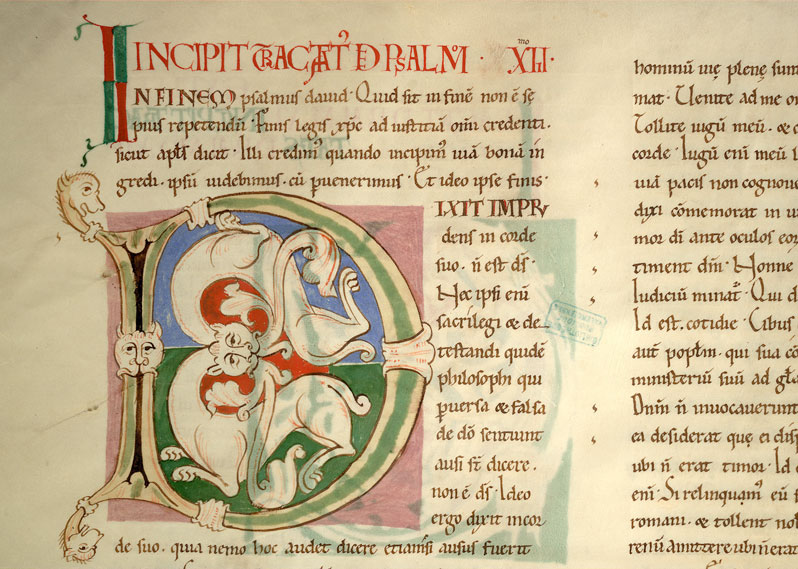 INCIPIT TRACTAT' DE PSALMO · XIII · mo
IN FINEM psalmus dauid · Quid sit in finē non ē sę
pius repetendū · Finis legis xp̄c ad iustitiā om̄i credenti ·
sicut apl̄s dicit · Illi credim' quando incipim' uiā bonā in
gredi · ipsū uidebimus · cū ꝑuenerimus · Et ideo ipse finis ·
DIXIT IMPRV
dens in corde
suo · n̄ est d̄s ·
Hoc ipsi enī
sacrilegi & de
testandi quidē
philosophi qui
ꝑuersa & falsa
de dō sentiunt
ausi st̄ dicere ·
non ē d̄s · Ideo
ergo dixit in cor
de suo · quia nemo hoc audet dicere etiamsi ausus fuerit
hominū uię plenę sunt
mat · Uenite ad me om
Tollite iugū meū · & d
corde · Iugū enī meū l
uiā pacis non cognoue
dixi cōmemorat in ui
mor dī ante oculos eor
timent dn̄m · Nonne
Iudiciū minat' · Qui d
Id est · cotidie · Cibus
aut poplm̄ · qui sua cō
ministeriū suū ad gl̄a
Dnm̄ n̄ inuocauerunt
ea desiderat quę ei disp
ubi n̄ erat timor · Id e
enī · Si relinquam' eū s
romani · & tollent nob
renū amittere ubi n̄ erat